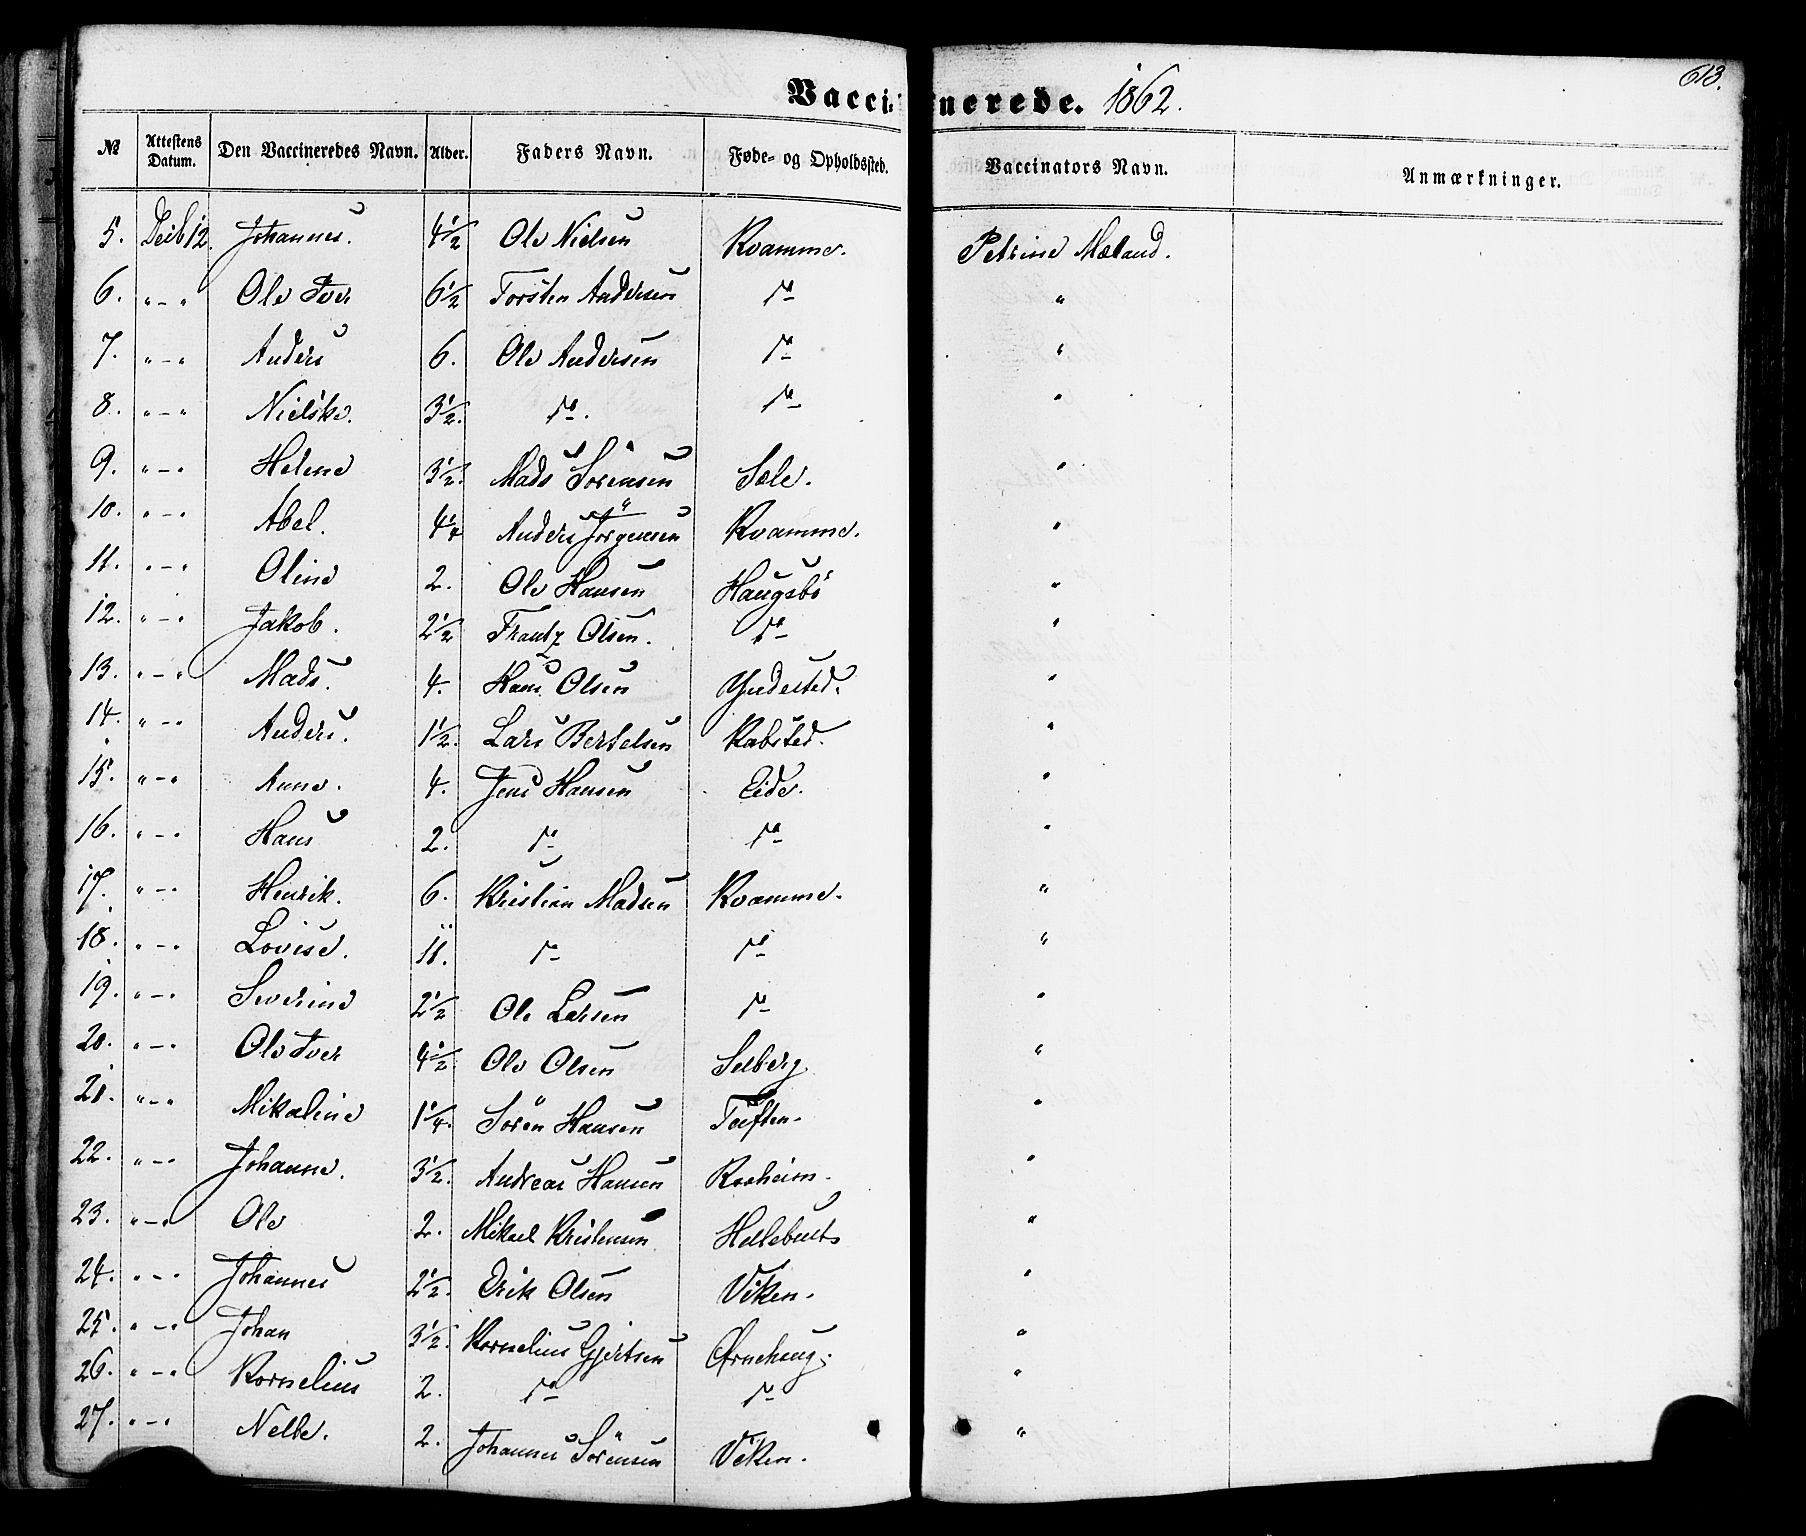 613.
Vaccinerede. 1862.
№ Attestens Datum. Den Vaccineredes Navn. Alder. Faders Navn. Føde- og Opholdssted. Vaccinators Navn. Anmærkninger.
5. Decb 12. Johannes. 4 1/2 Ole Nielsen Kvamme. Petrine Mæland.
6. " - " Ole Iver 6 1/2 Torsten Andersen do "
7. " - " Anders 6. Ole Andersen do "
8. " - " Nielske. 3 1/2. do. do "
9. " - " Helene 3 1/2. Mads Sörensen Sæle. "
10. " - " Abel. 4 1/4 Anders Jörgensen Kvamme. "
11. " - " Oline 2. Ole Hansen Haugsbö "
12. " - " Jakob. 2 1/2 Frantz Olsen. do "
13. " - " Mads. 4. Hans Olsen Yndested. "
14. " - " Anders. 1 1/2. Lars Bertelsen Rabsted. "
15. " - " Anne. 4. Jens Hansen Eide. "
16. " - " Hans 2. do do "
17. " - " Henrik. 6. Kristian Madsen Kvamme. "
18. " - " Lovise. 11. do do "
19. " - " Severine 2 1/2 Ole Larsen do "
20. " - " Ole Iver 4 1/2 Ole Olsen Selberg "
21. " - " Mikaline 1 1/4. Sören Hansen Tuften. "
22. " - " Johanne. 3 1/2. Andreas Hansen Roaheim. "
23. " - " Ole 2. Mikael Kristensen Hellebust "
24. " - " Johannes 2 1/2. Erik Olsen Viken. "
25. " - " Johan 3 1/2. Kornelius Gjertsen Ørnehaug. "
26. " - " Kornelius 2. do do "
27. " - " Nelle. 2. Johannes Sörensen Viken. "